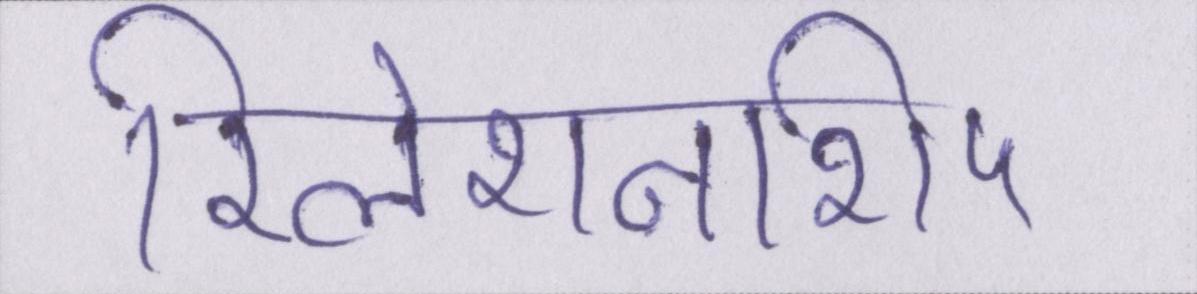 रिलेशनशिप